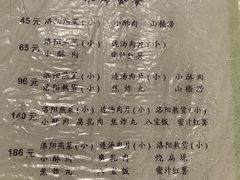 45元 洛阳燕菜(小) 小酥肉 山楂涝
65元 洛阳燕菜(小) 连汤肉片(小)
小酥肉 蜜汁红薯
96元 洛阳燕菜(小) 连汤肉片(小) 小酥肉
焦炸丸 洛阳熬货(小) 山楂涝
140元 洛阳燕菜(小) 连汤肉片(小) 洛阳熬货(小)
小酥肉 腐乳肉 焦炸丸 八宝饭 蜜汁红薯
186元 洛阳燕菜(小) 连汤肉片(小) 洛阳熬货(小)
小酥肉 腐乳肉 烧扁垛
焦炸丸 八宝饭 蜜汁红薯